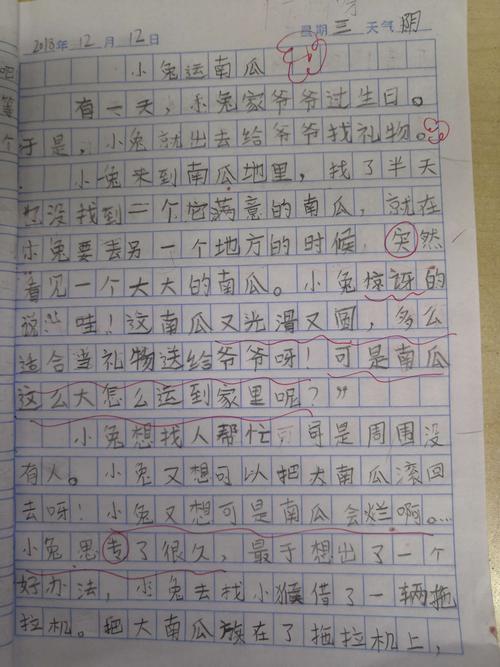 2018年12月12日 星期三 天气阴
小兔运南瓜
有一天，小兔家爷爷过生日。
于是，小兔就出去给爷爷找礼物。
小兔来到南瓜地里，找了半天
没找到一个它满意的南瓜，就在
小兔要去另一个地方的时候，突然
看见一个大大的南瓜。小兔惊讶的
说："哇！这南瓜又光滑又圆，多么
适合当礼物送给爷爷呀！可是南瓜
这么大怎么运到家里呢？"
小兔想找人帮忙可是周围没
有人。小兔又想可以把大南瓜滚回
去呀！小兔又想可是南瓜会烂啊。…
小兔思考了很久，最于想出了一个
好办法，小兔去找小猴借了一辆拖
拉机。把大南瓜放在了拖拉机上，